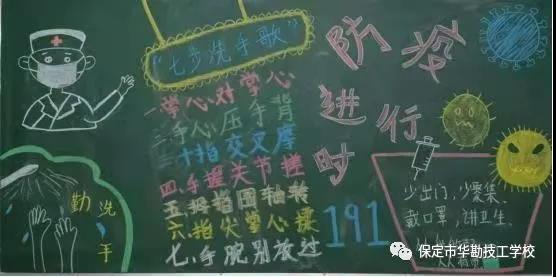 “七步洗手歌”
一掌心对掌心
二手心压手背
十指交叉摩
四.手握关节搓
五.拇指围轴转
六.指尖掌心揉
七.手腕别放过
防疫
进行时
191
勤洗手
少出门,少聚集,
戴口罩,讲卫生,
保定市华勘技工学校